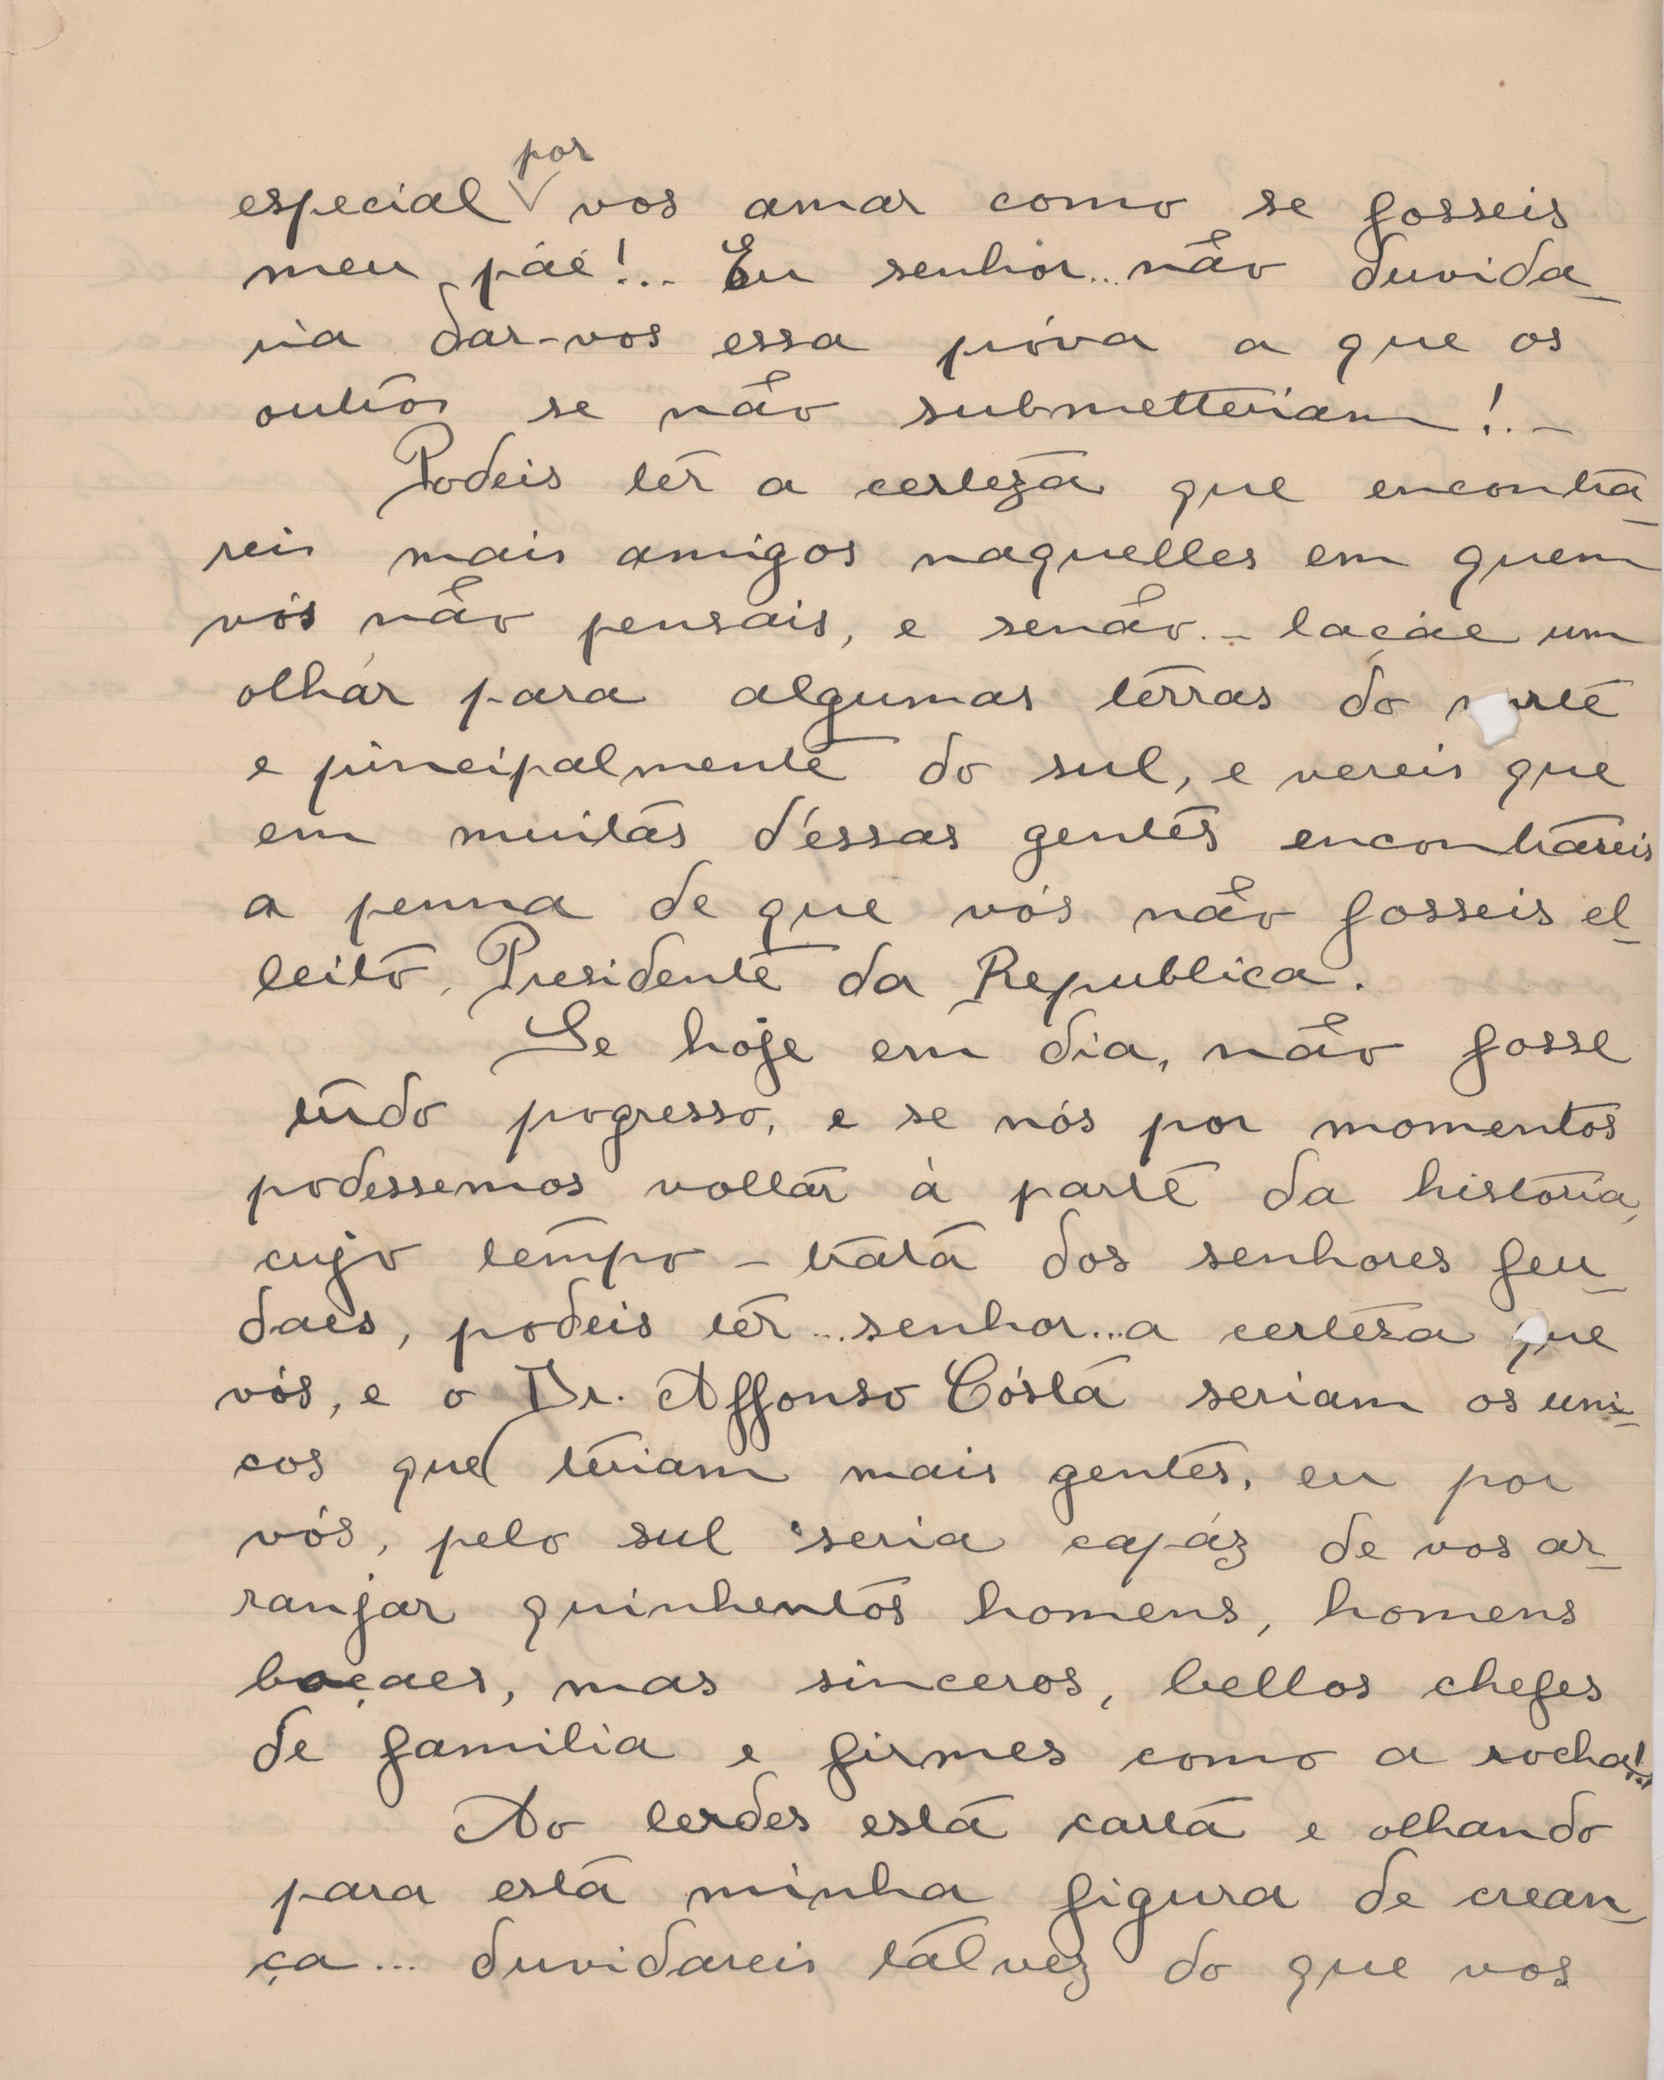 por
especial vos amar como se fosseis
meu páe!.. Eu senhor.. não duvida-
ria dar-vos essa próva a que os
outros se não submetteriam!..-
Podeis ter a certeza que encontra-
reis mais amigos naquelles em quem
vós não pensais, e senão.- laçáe um
olhár para algumas terras do norte
e principalmente do sul, e vereis que
em muitas d'éssas gentes encontrareis
a penna de que vós não fosseis el-
leito, Presidente da Republica.
Se hoje em dia, não fosse
tudo pogresso, e se nós por momentos
podessemos voltar á parte da historia,
cujo tempo - trata dos senhores feu-
daes, podeis ter... senhor... a certeza que
vós, e o Dr. Affonso Cósta seriam os uni-
cos que teriam mais gentes, eu por
vós, pelo sul seria capáz de vos ar-
ranjar quinhentos homens, homens
boçaes, mas sinceros, bellos chefes
de familia e firmes como a rocha!..
Ao lerdes esta carta e olhando
para esta minha figura de crean-
ça... duvidareis talvez do que vos